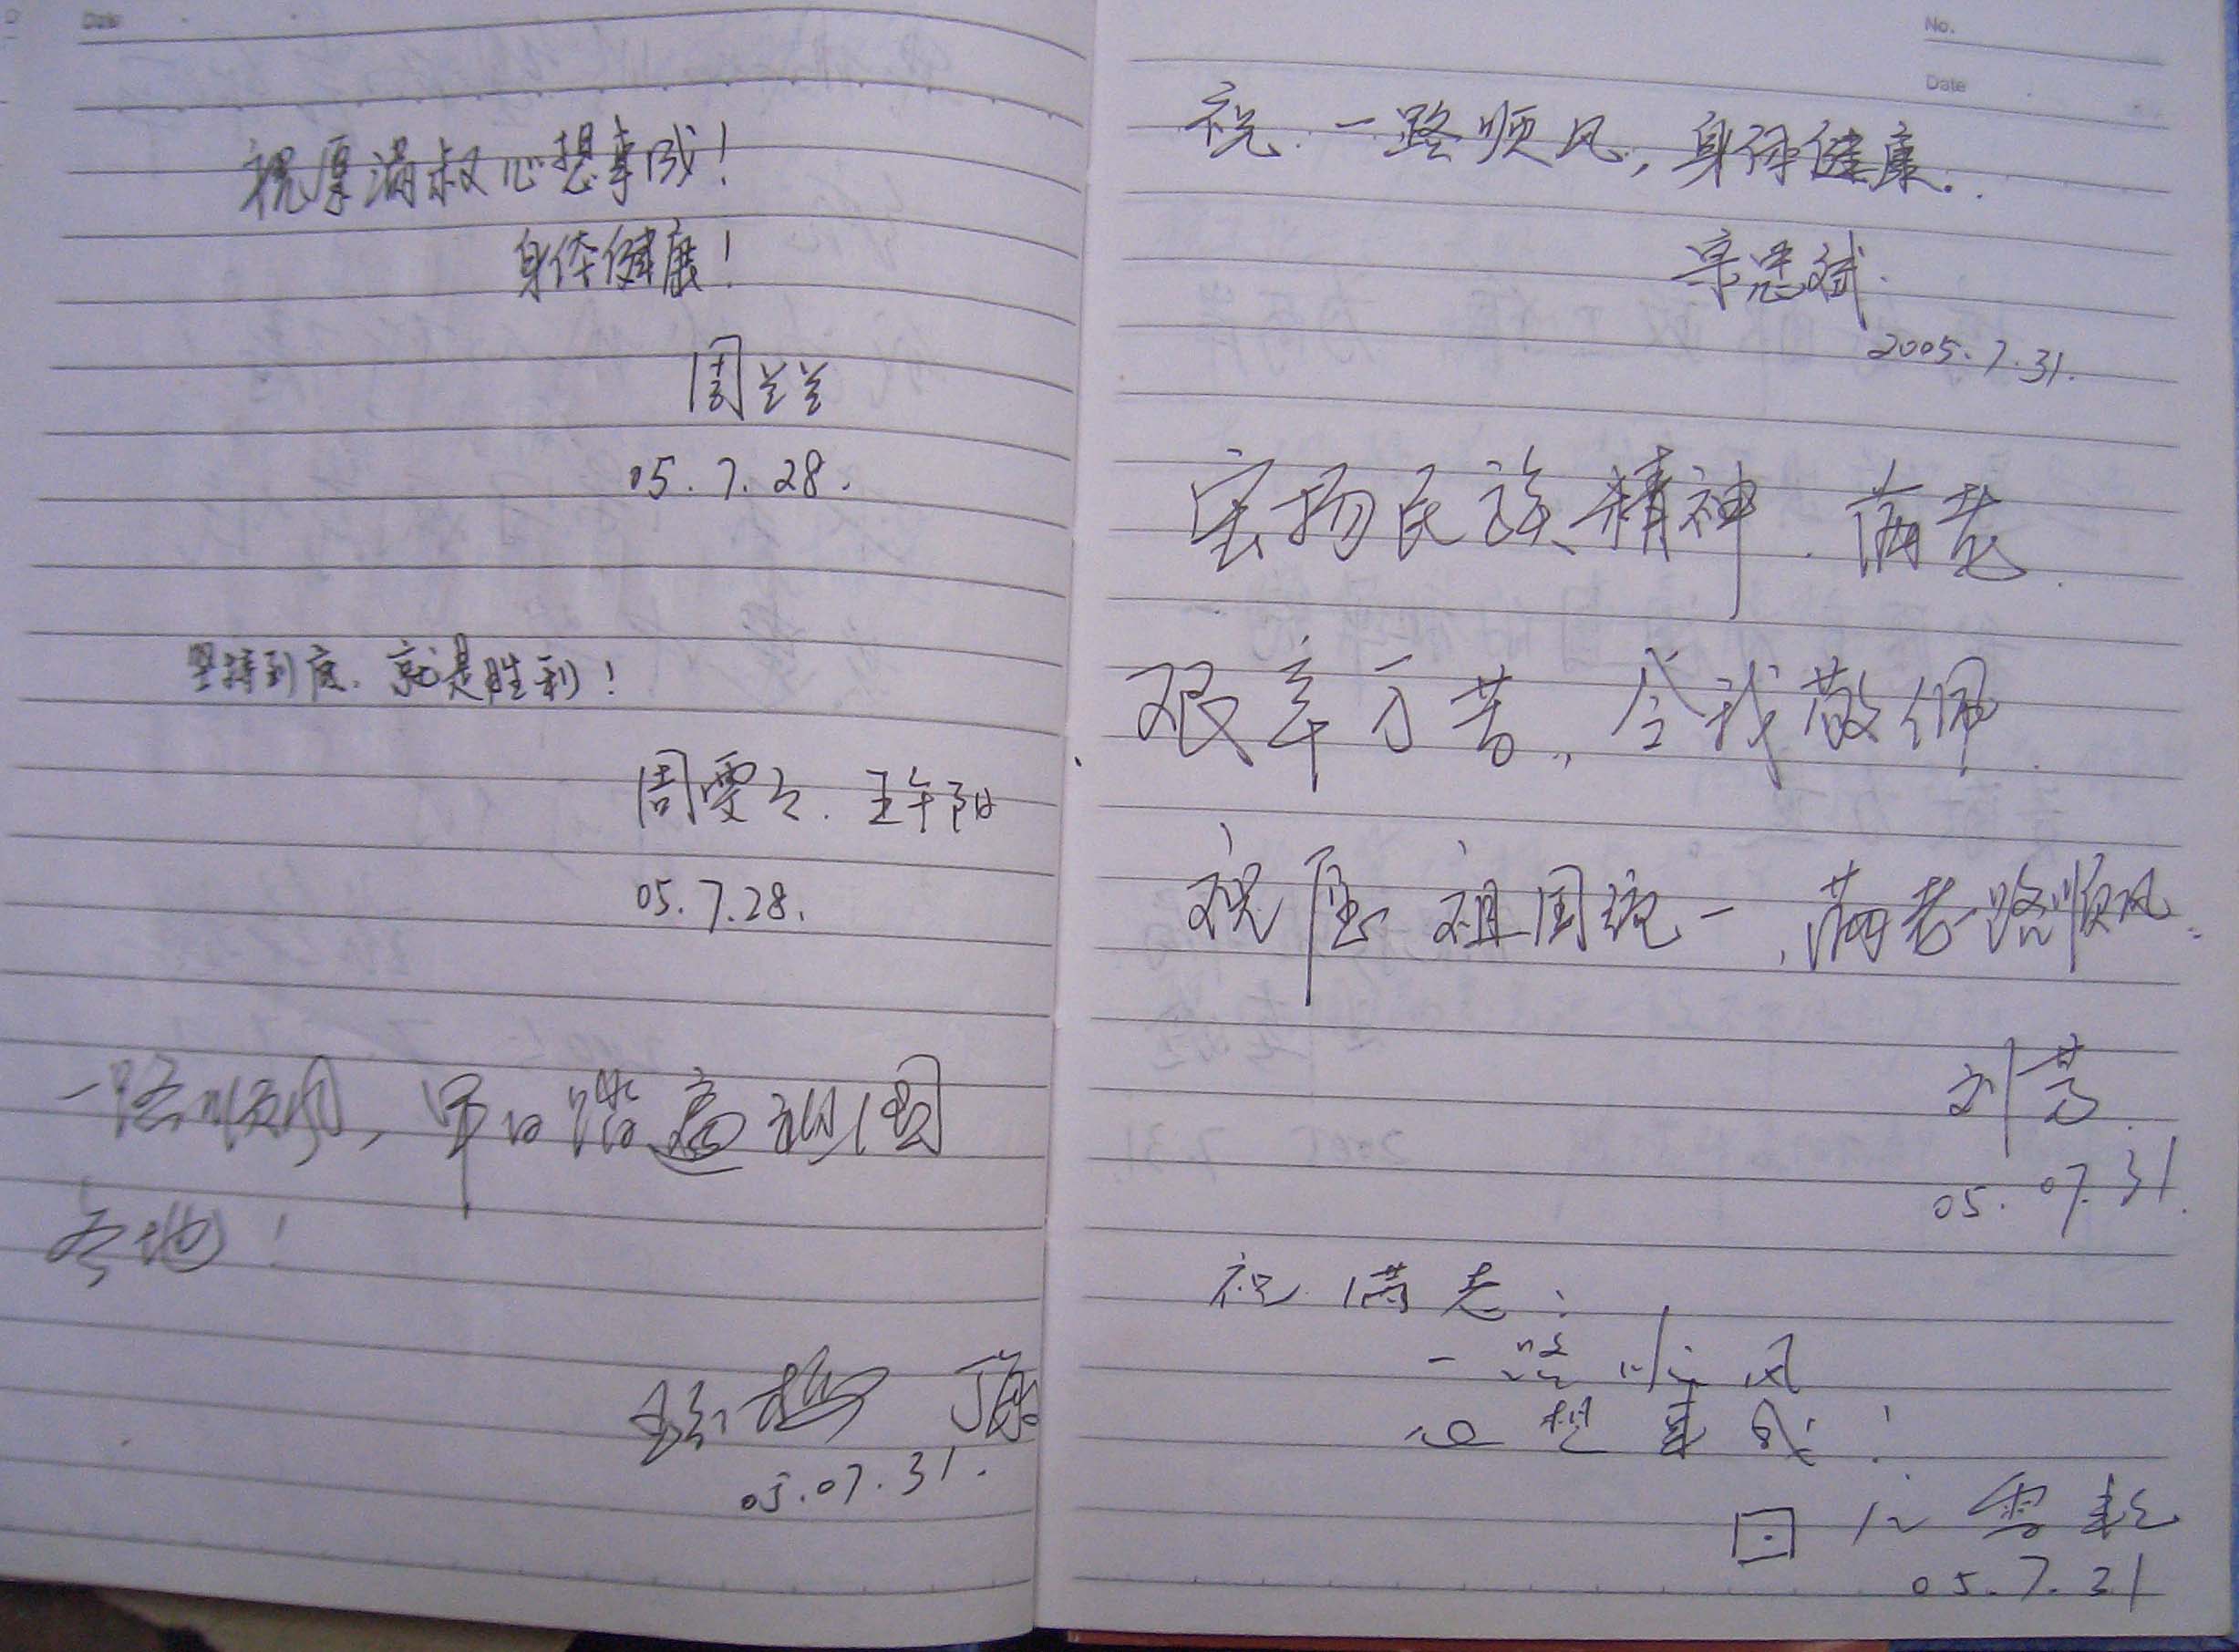 Date
祝厚满叔心想事成！
身体健康！
周兰兰
05.7.28.
坚持到底、就是胜利！
周雯 王午阳
05.7.28.
一路顺风，早日踏遍祖国
各地！
05.07.31.
No.
Date
祝 一路顺风，身体健康.
思斌
2005.7.31.
宏扬民族精神．满老
艰辛万苦，令我敬佩
祝愿 祖国统一，满老一路顺风
刘芳
05.07.31.
祝 满老：
一路顺风
心想事成！
雪
05.7.31